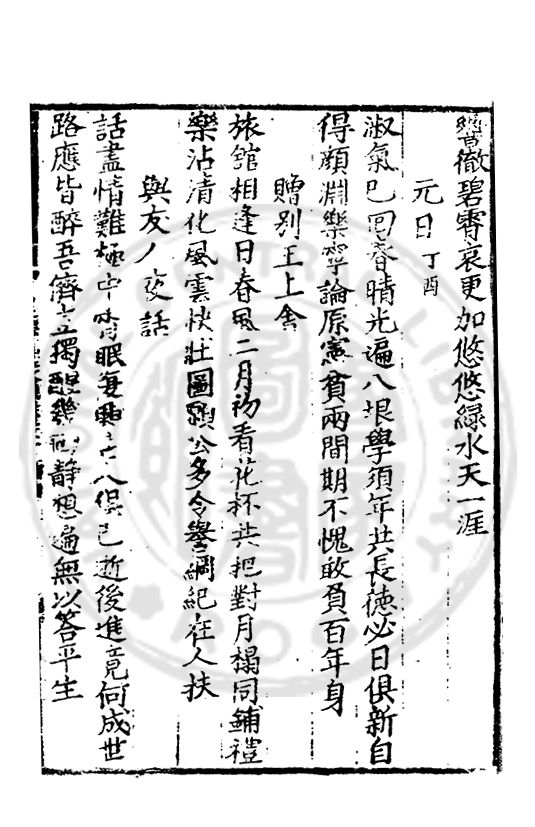 徹碧霄哀更加悠悠綠水天一涯
元日丁酉
淑氣已回春晴光遍八垠學須年共長德必日俱新自
得顏淵樂寧論原憲貧兩間期不愧敢負百年身
贈別王上舍
旅館相逢日春風二月初看花杯共把對月榻同鋪禮
樂沾清化風雲快壯圖願公多令譽綱紀在人扶
與友人夜話
話盡情難極中宵眠復興人俱已逝後進竟何成世
路應皆醉吾儕立獨醒幾靜想遍無以答平生